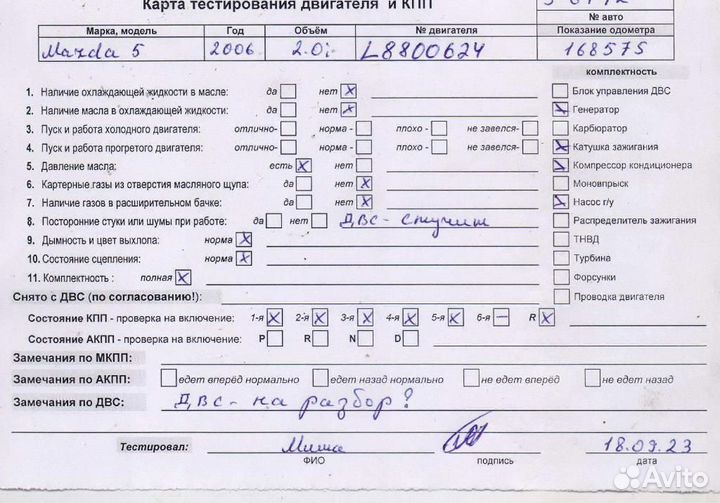 Карта тестирования двигателя и КПП
№ авто
Марка, модель Год Объём № двигателя Показание одометра
Mazda 5 2006 2.0i L8800624 168575
комплектность
1. Наличие охлаждающей жидкости в масле: да нет X Блок управления ДВС
2. Наличие масла в охлаждающей жидкости: да нет X Генератор
3. Пуск и работа холодного двигателя: отлично- норма - плохо - не завелся- Карбюратор
4. Пуск и работа прогретого двигателя: отлично- норма - плохо - не завелся- Катушка зажигания
5. Давление масла: есть X нет Компрессор кондиционера
6. Картерные газы из отверстия масляного щупа: да нет X Моновпрыск
7. Наличие газов в расширительном бачке: да нет X Насос г/у
8. Посторонние стуки или шумы при работе: да нет ДВС - стучит Распределитель зажигания
9. Дымность и цвет выхлопа: норма X ТНВД
10. Состояние сцепления: норма X Турбина
11. Комплектность : полная X Форсунки
Снято с ДВС (по согласованию!): Проводка двигателя
Состояние КПП - проверка на включение: 1-я X 2-я X 3-я X 4-я X 5-я X 6-я — R X
Состояние АКПП - проверка на включение: P R N D
Замечания по МКПП:
Замечания по АКПП: едет вперёд нормально едет назад нормально не едет вперёд не едет назад
Замечания по ДВС: ДВС - на разбор?
Тестировал: Миша 18.09.23
ФИО подпись дата
Avito